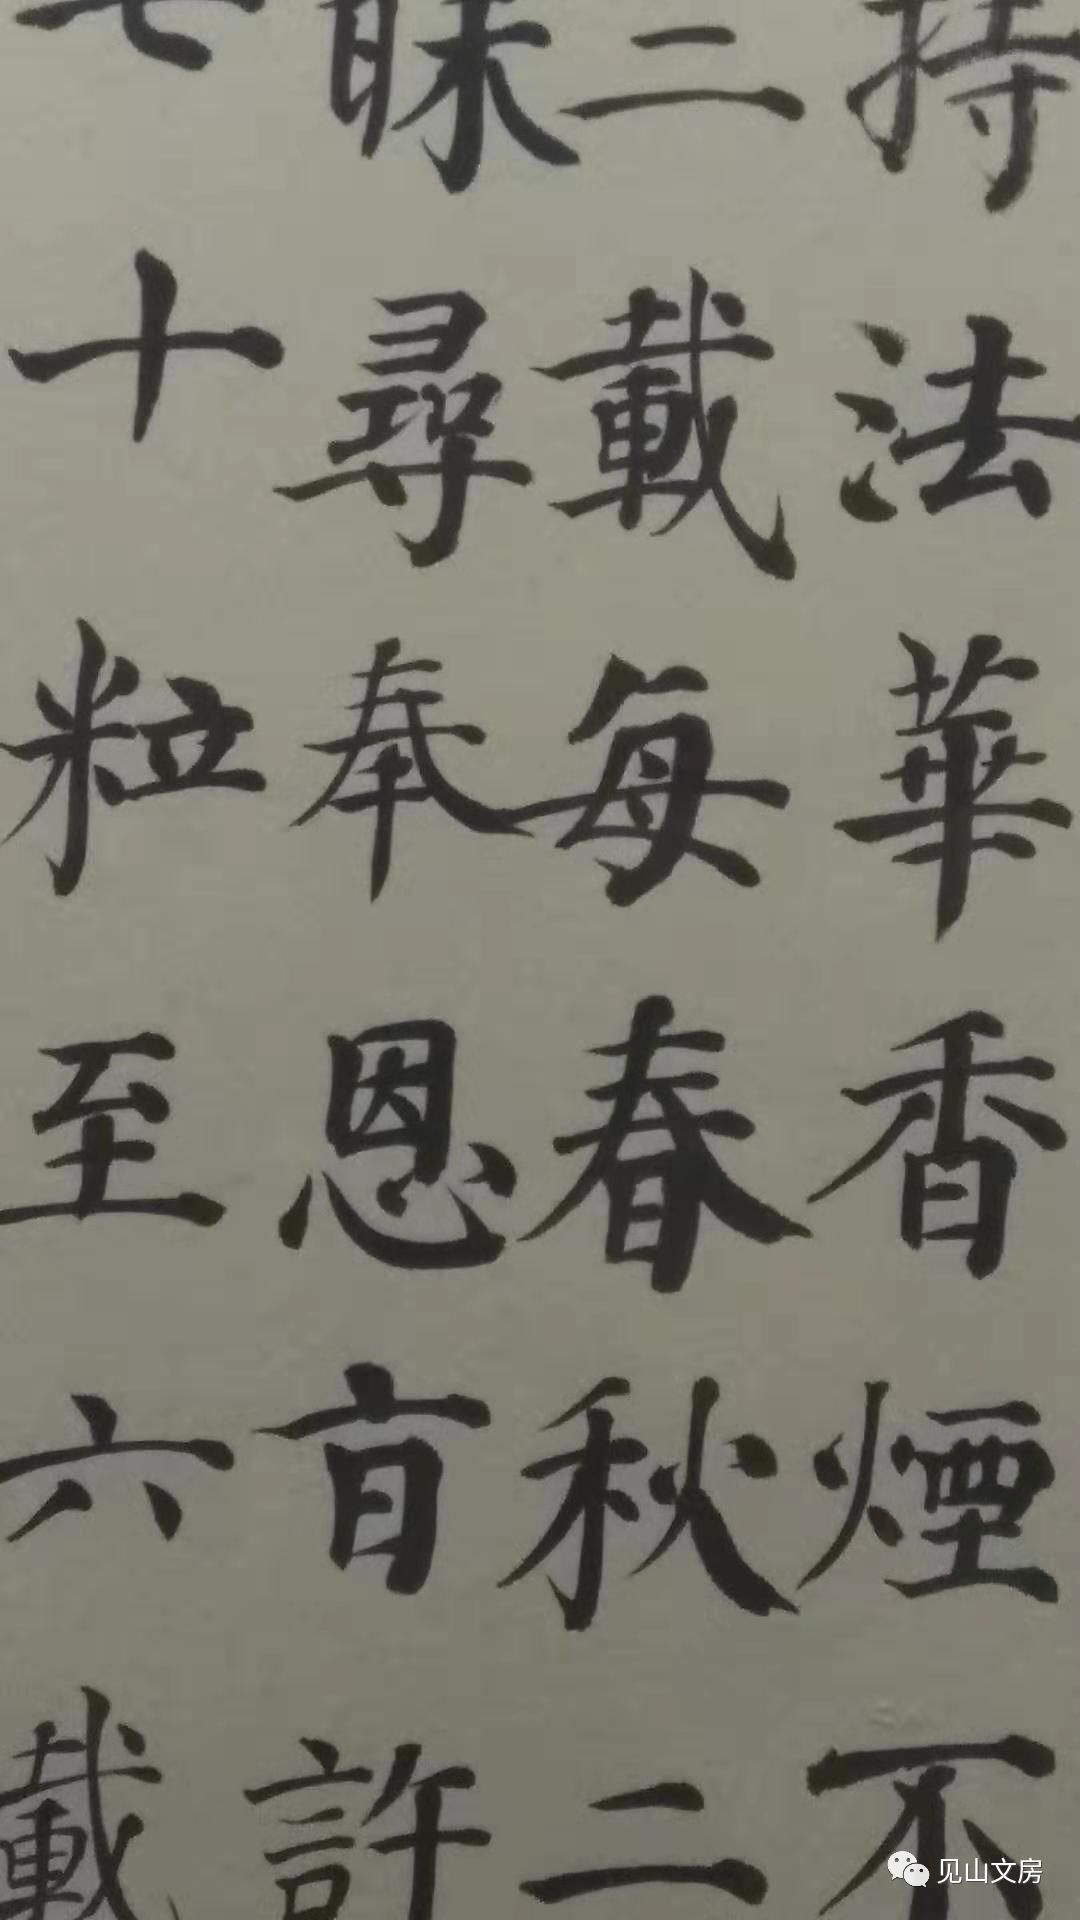 持法華香煙不
二載每春秋二
昧尋奉恩旨許
七十粒至六載
见山文房